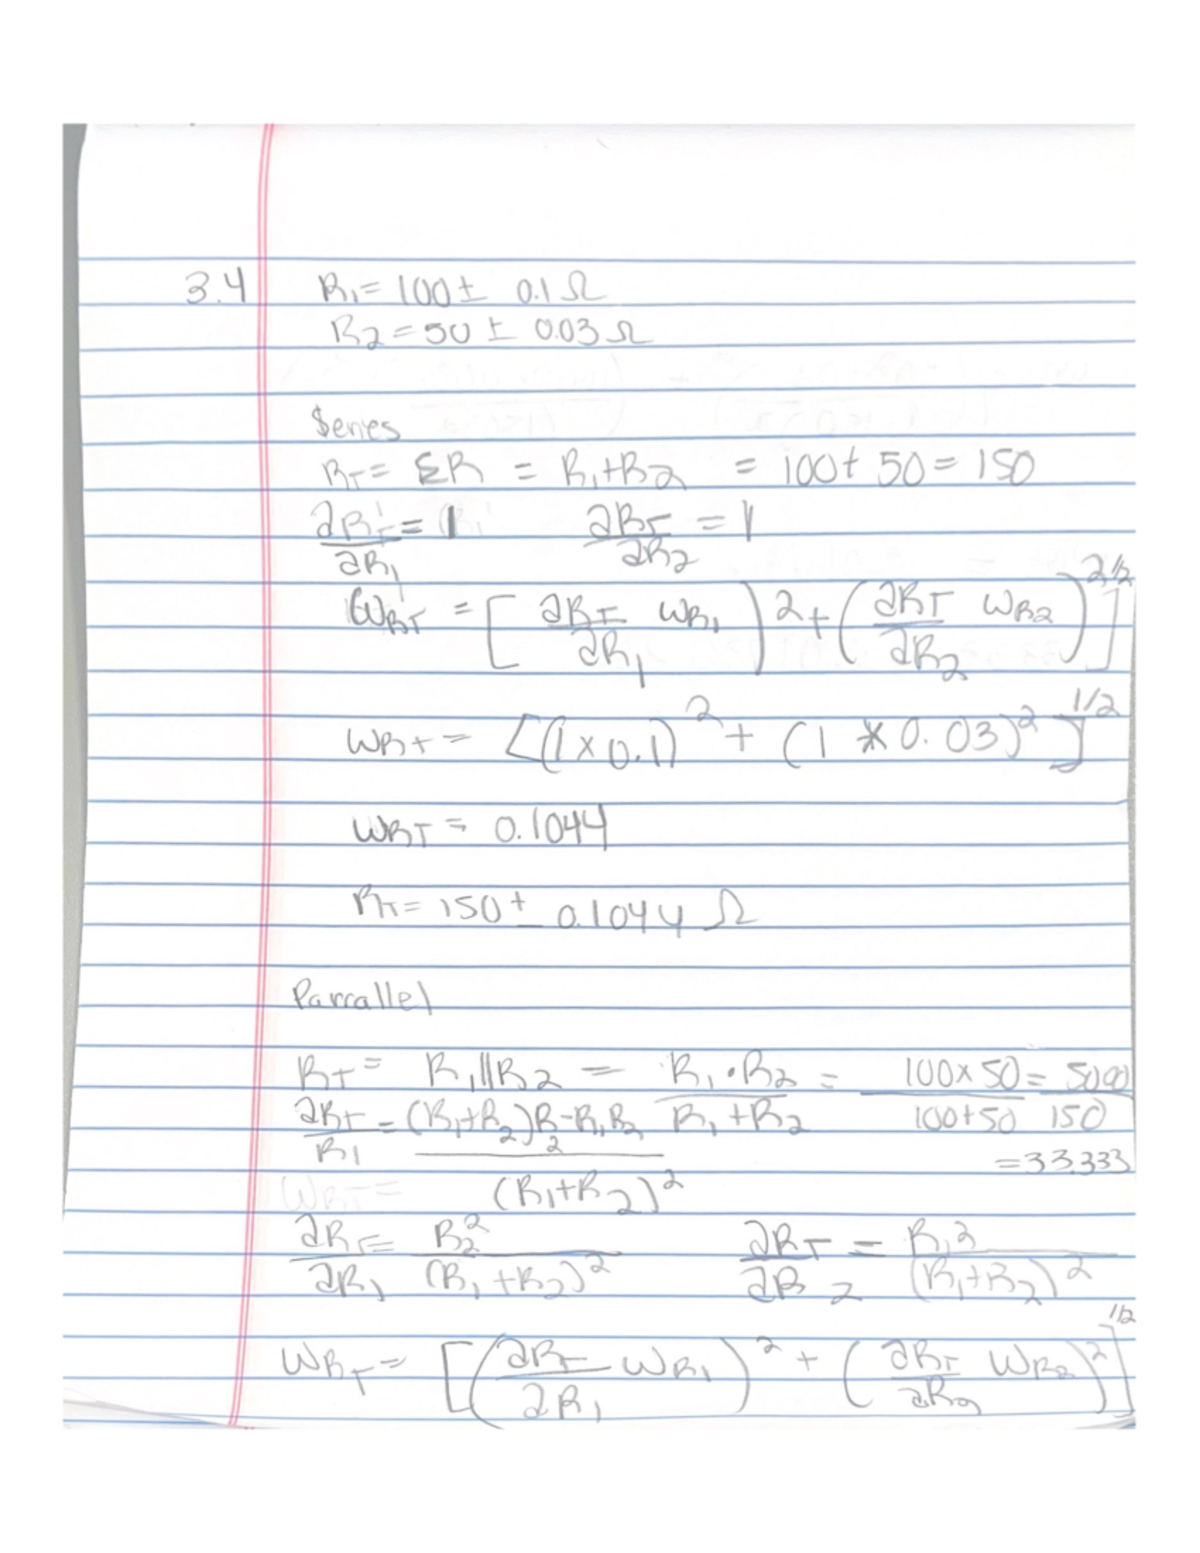 3.4 R₁= 100 ± 0.1 Ω
R2 = 50 ± 0.03 Ω
Series
RT = ΣR = R₁+R2 = 100+ 50 = 150
∂RT/∂R₁ = 1 ∂RT/∂R2 = 1
WRT = [∂RT/∂R₁ WR₁)² + (∂RT/∂R2 WR2)²]^1/2
WRT = [(1 x 0.1)² + (1 * 0.03)²]^1/2
WRT = 0.1044
RT = 150 ± 0.1044 Ω
Parrallel
RT = R₁||R2 = R₁·R2/R₁+R2 = 100x50/100+50 = 5000/150
∂RT/R₁ = (R₁+R₂)R₂-R₁R₂/(R₁+R₂)² =33.333
WRT =
∂RT/∂R₁ = R₂²/(R₁+R₂)² ∂RT/∂R2 = R₁²/(R₁+R₂)²
WRT = [(∂RT/∂R₁ WR₁)² + (∂RT/∂R2 WR2)²]^1/2